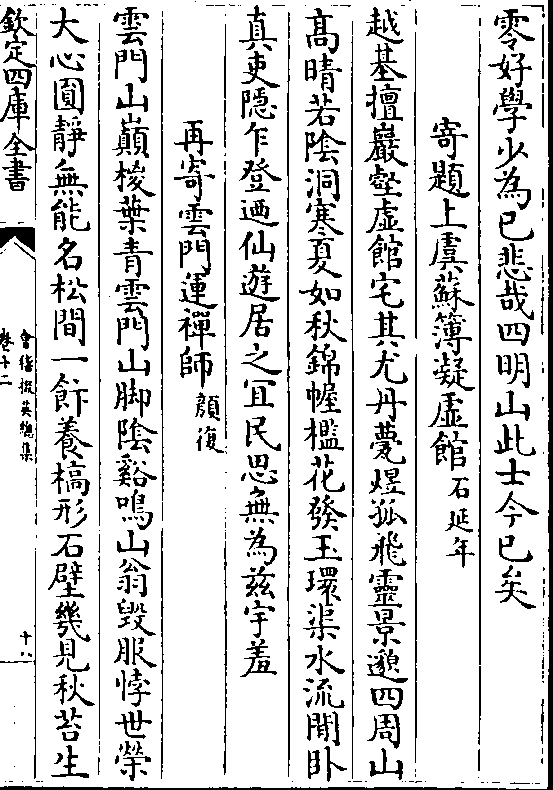 零好學少為已悲哉四明山此士今已矣
寄題上虞蘇簿凝虛館石延年
越基擅巖壑虛館宅其尤丹甍煜孤飛靈景邈四周山
高晴若陰洞寒夏如秋錦幄檻花發玉環渠水流閒卧
真吏隱乍登迺仙遊居之宜民思無為兹宇羞
再寄雲門運禪師顏復
雲門山巔梭葉青雲門山脚陰谿鳴山翁毀服悖世榮
大心圓靜無能名松間一飰養槁形石壁幾見秋苔生
欽定四庫全書
會稽掇英總集
卷十二
十八